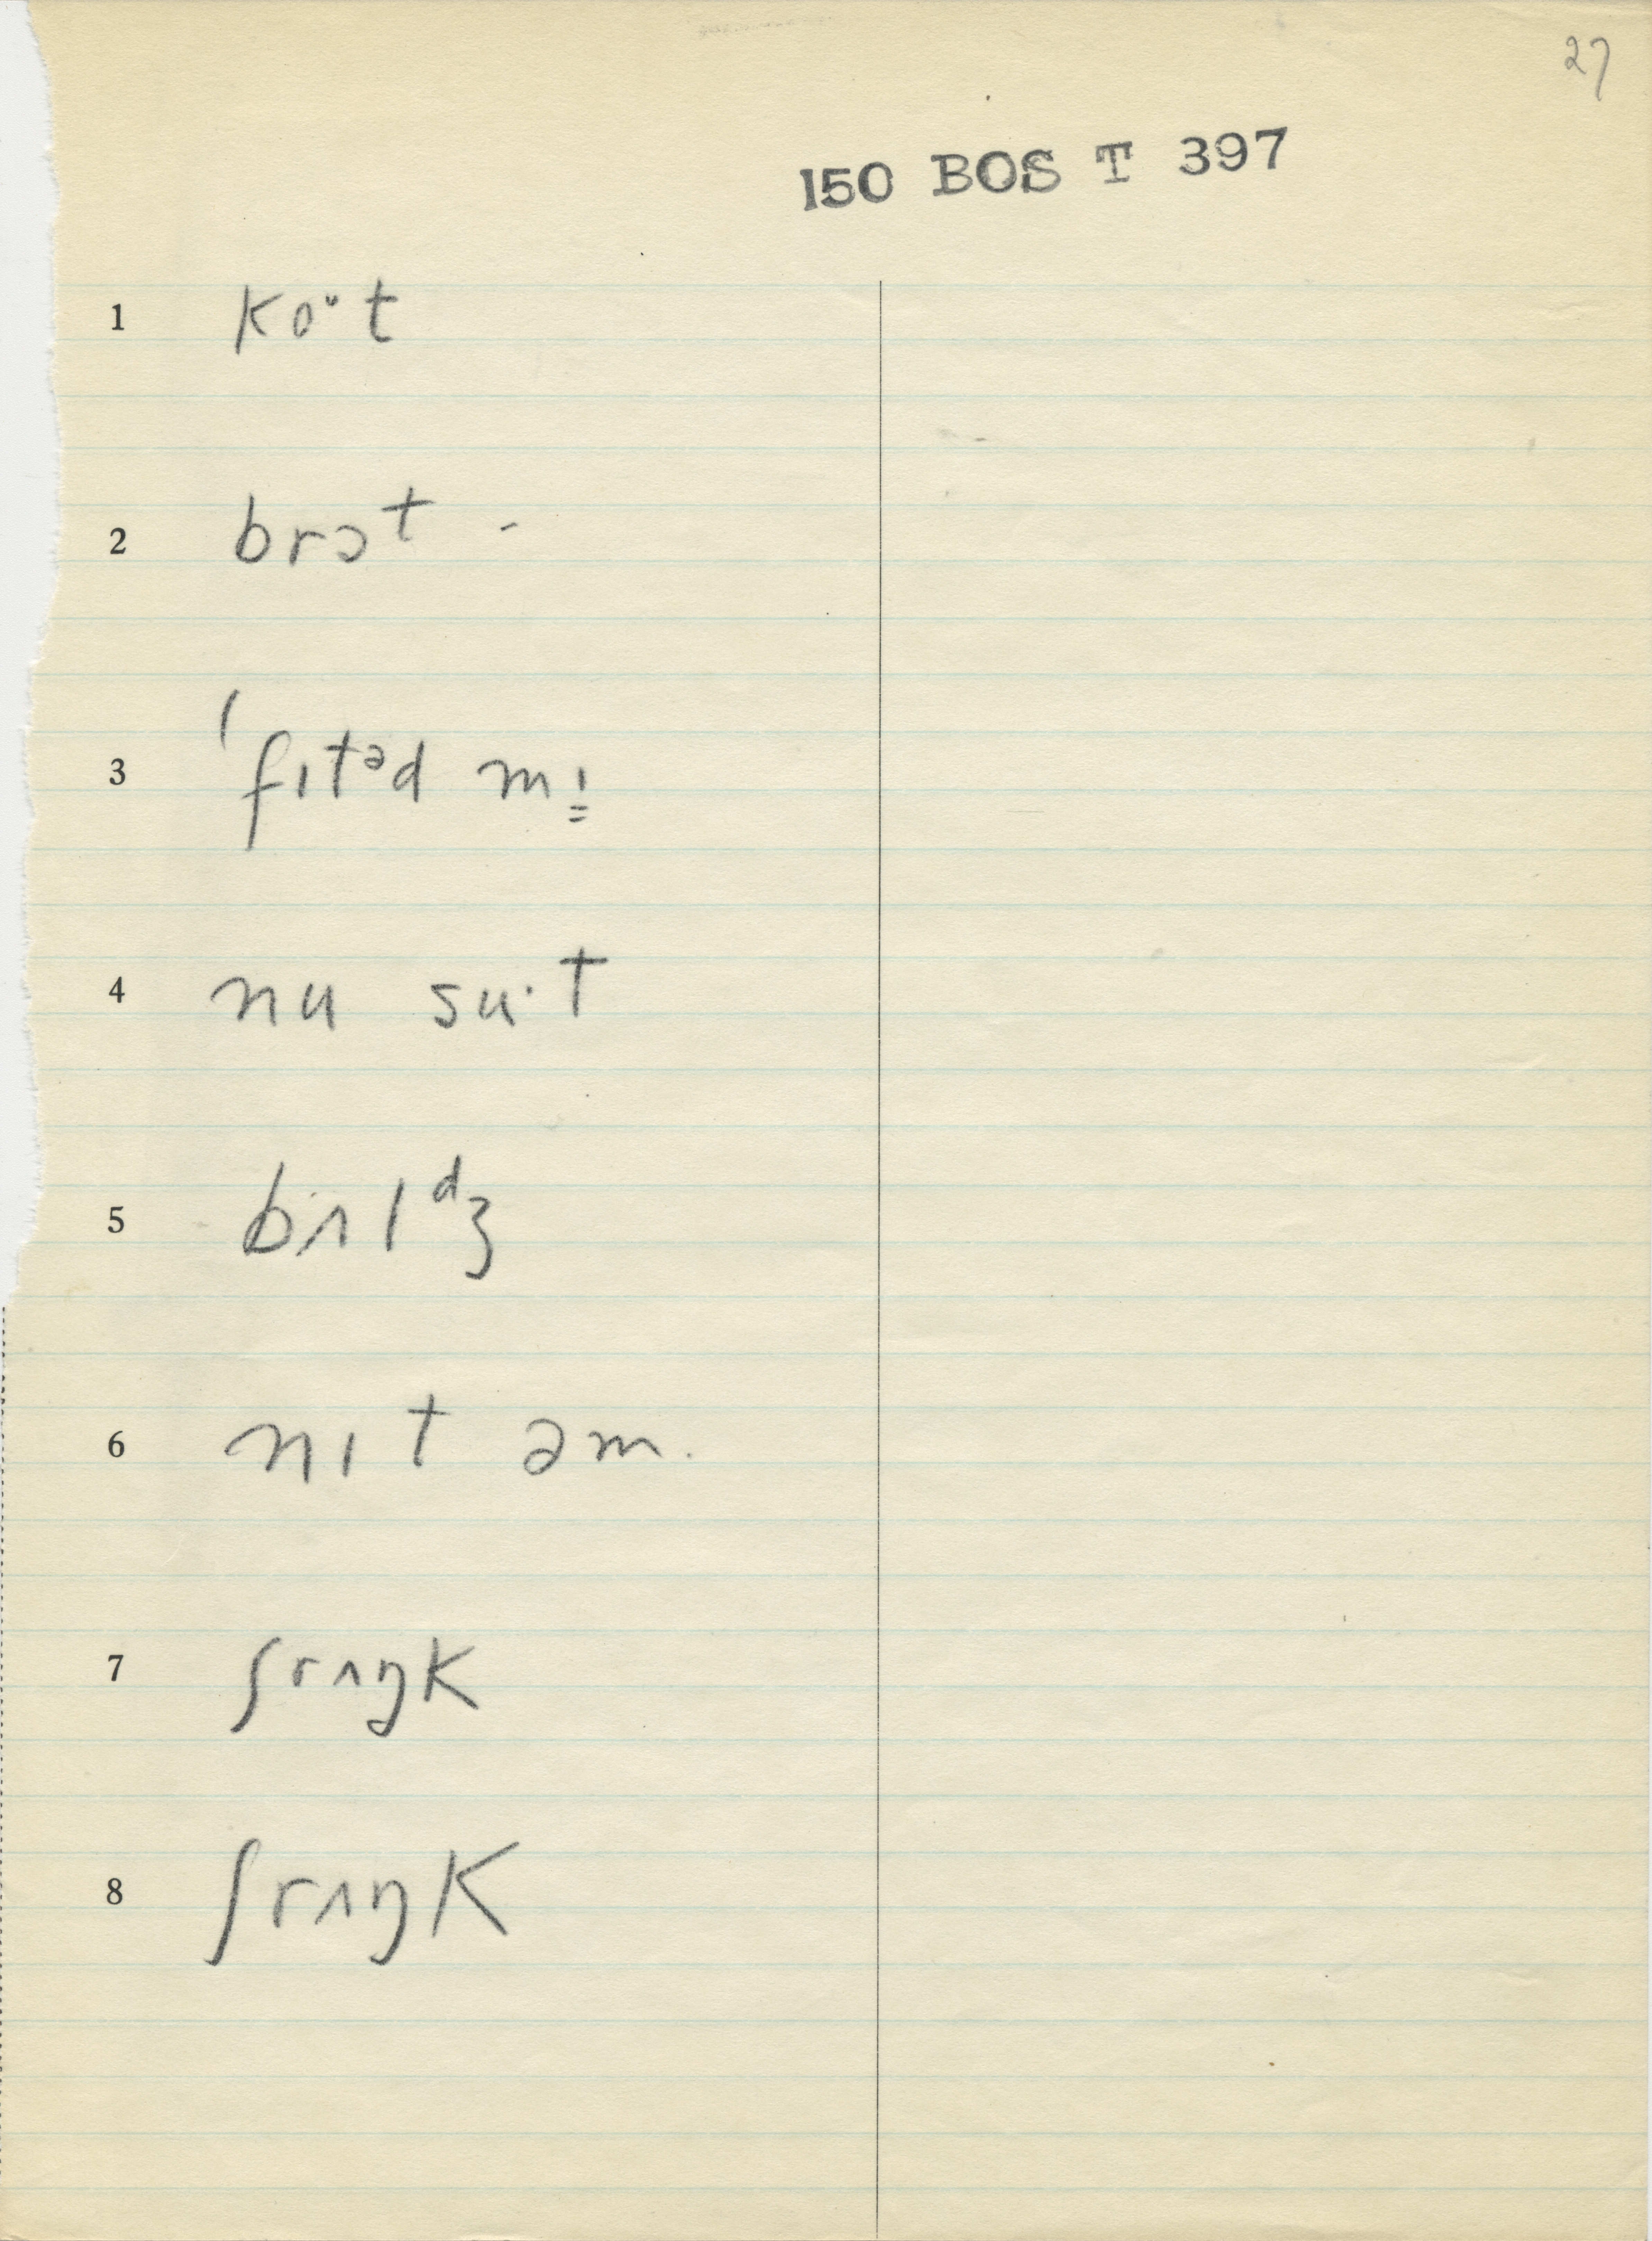 27
150 BOS T 397
1 koᵘt
2 brɔt -
3 ˈfɪtᵊd mɪ
4 nu su·t
5 bɪʌlᵈʒ
6 nɪt əm.
7 ʃrʌŋk
8 ʃrʌŋk